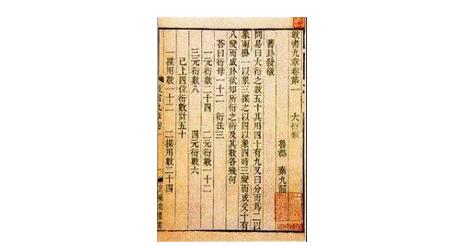 數書九章卷第一　大衍類
魯郡　秦九韶
蓍卦發微
問易曰大衍之數五十其用四十有九又曰分而為二以
象兩掛一以象三揲之以四以象四時三變而成爻十有
八變而成卦欲知所衍之術及其數各幾何
答曰衍母一十二　衍法三
一元衍數二十四　二元衍數一十二
三元衍數八　四元衍數六
已上四位衍數計五十
一揲用數一十二　二揲用數二十四